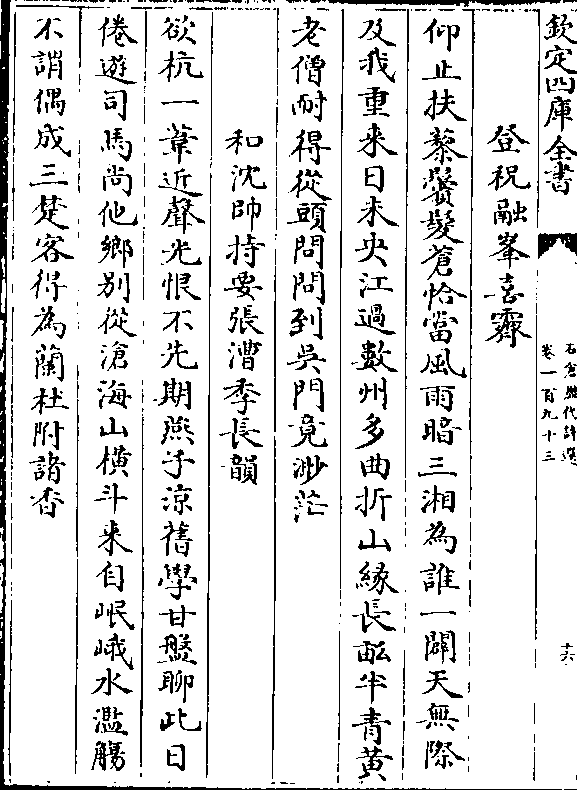 欽定四庫全書
石倉歷代詩選
卷一百九十三
十六
登祝融峯喜霽
仰止扶藜鬢髮蒼恰當風雨暗三湘為誰一闢天無際
及我重来日未央江過數州多曲折山緣長畝半青黃
老僧耐得從頭問問到吳門竟渺茫
和沈帥持要張漕季長韻
欲杭一葦近聲光恨不先期燕子涼舊學甘盤聊此日
倦遊司馬尚他鄉别從滄海山横斗来自岷峨水濫觴
不謂偶成三楚客得為蘭杜附諸香